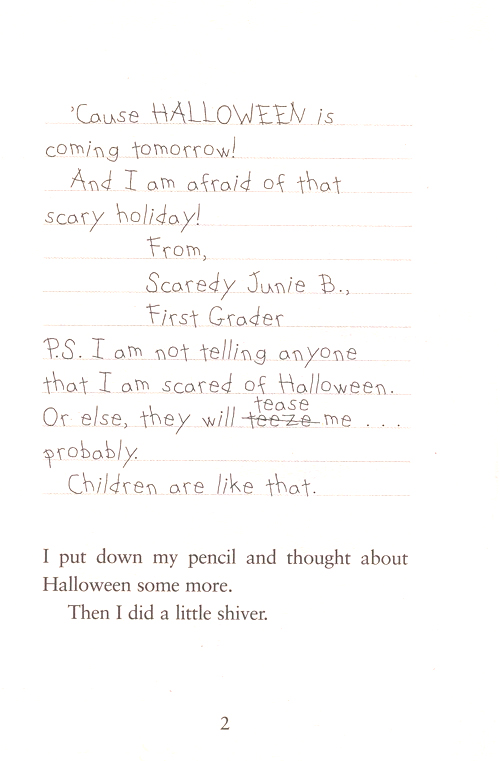 'Cause HALLOWEEN is
coming tomorrow!
And I am afraid of that
scary holiday!
From,
Scaredy Junie B.,
First Grader
P.S. I am not telling anyone
that I am scared of Halloween.
tease
Or else, they will teeze me . . .
probably.
Children are like that.
I put down my pencil and thought about
Halloween some more.
Then I did a little shiver.
2